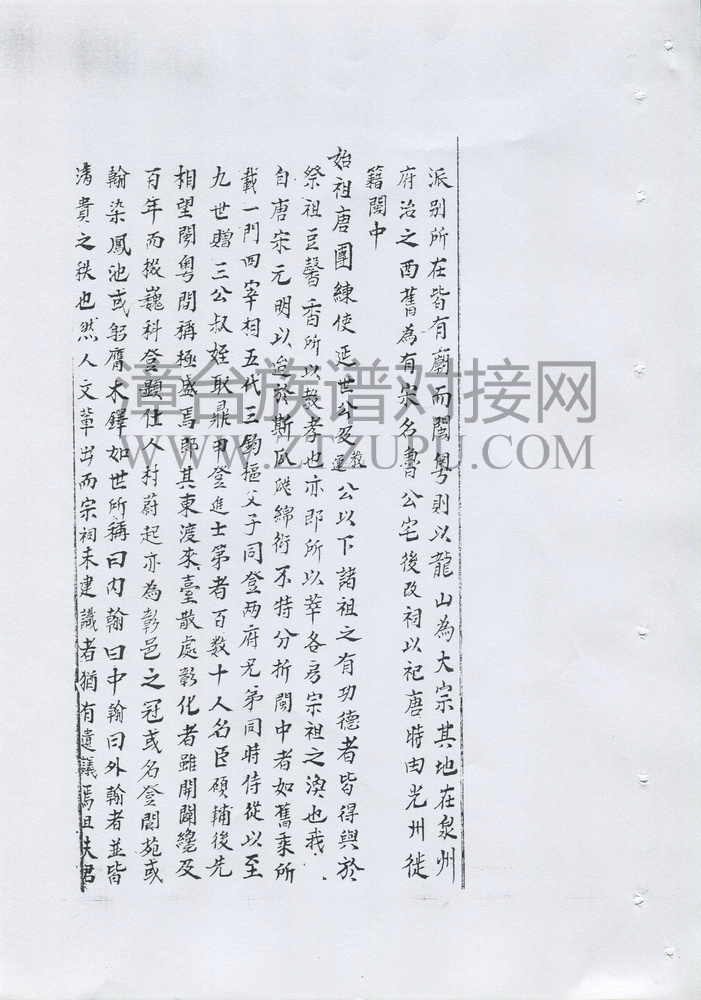 派別所在皆有廟而閩粵則以龍山為大宗其地在泉州
府治之西舊為有宋名魯公宅後改祠以祀唐時由光州徙
籍閩中
始祖唐團練使延世公及公以下諸祖之有功德者皆得與於
祭祖豆馨香所以教孝也亦即所以萃各房宗祖之渙也我
自唐宋元明以迨於斯瓜瓞綿衍不特分折閩中者如舊乘所
載一門四宰相五代三鈞樞父子同登两府兄弟同時侍從以至
九世贈三公叔姪取鼎甲登進士第者百数十人名臣碩輔後先
相望閩粵間稱極盛焉即其東渡來臺散處彰化者雖開闢纔及
百年而掇巍科登顯仕人材蔚起亦為彰邑之冠或名登閬苑或
翰染鳳池或躬膺木鐸如世所稱曰内翰曰中翰曰外翰者並皆
清貴之秩也然人文輩出而宗祠未建識者猶有遺議焉且夫君
漳台族谱对接网
WWW.ZTZUPU.COM